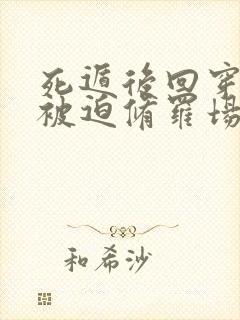 死遁後回穿
被迫脩羅場
和希沙